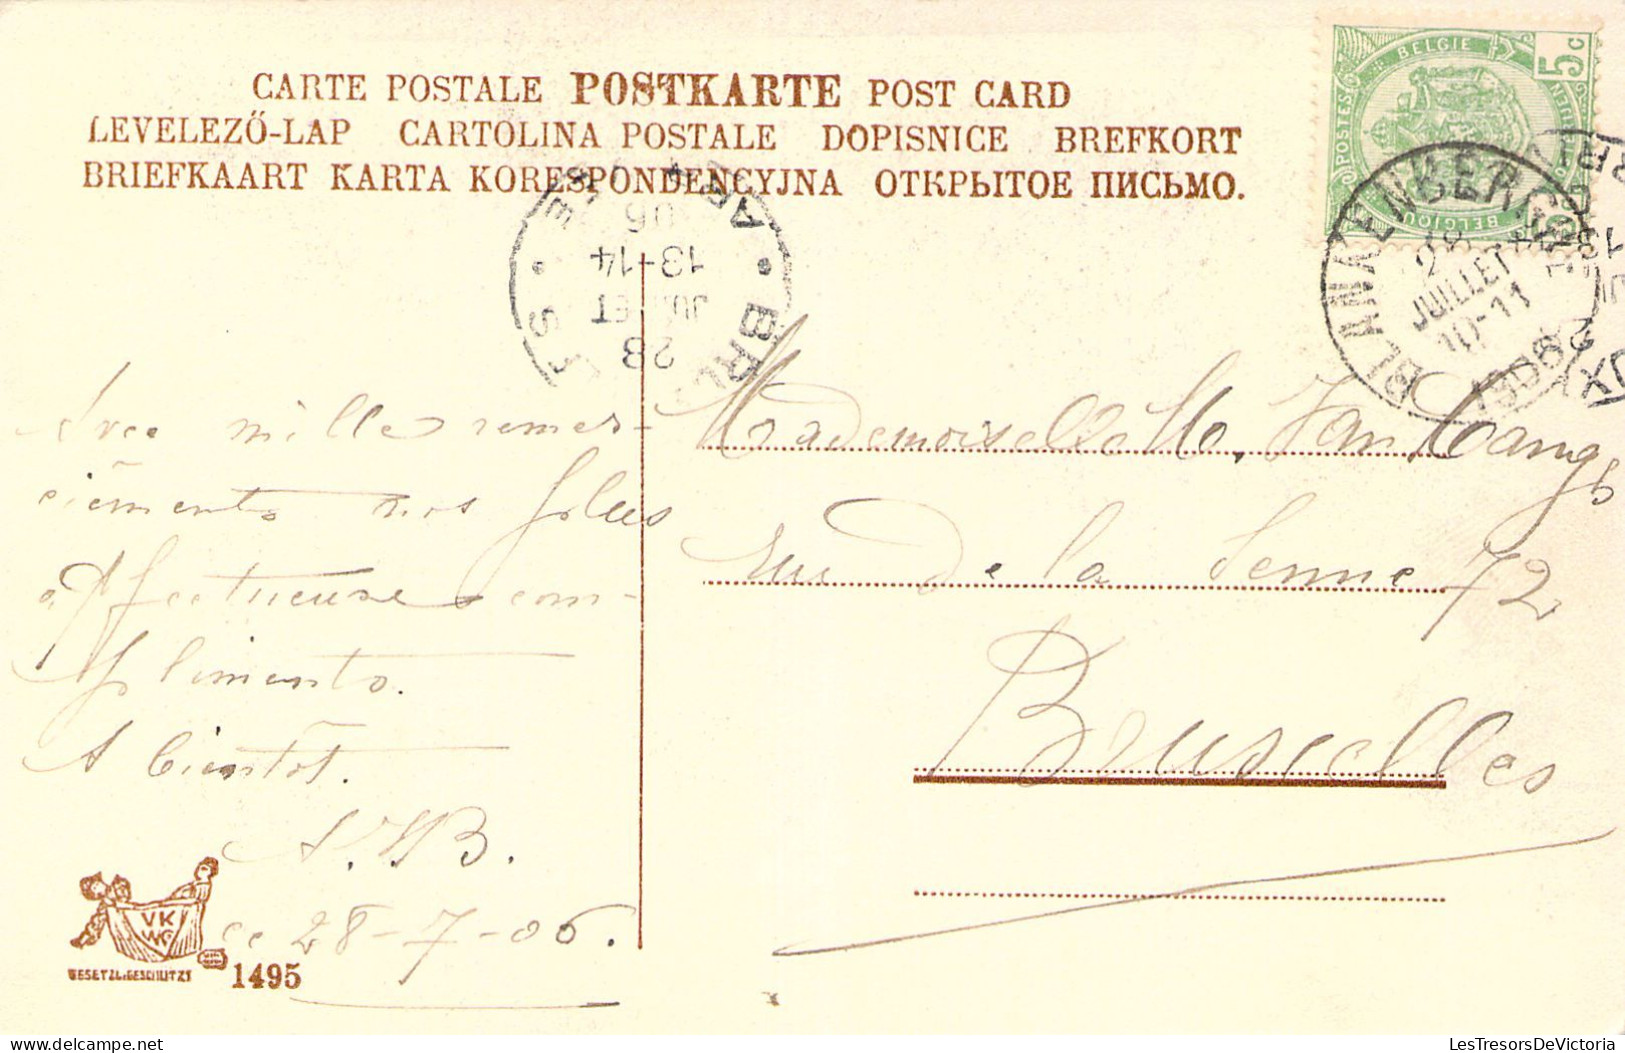 CARTE POSTALE POSTKARTE POST CARD
LEVELEZŐ-LAP CARTOLINA POSTALE DOPISNICE BREFKORT
BRIEFKAART KARTA KORESPONDENCYJNA ОТКРЫТОЕ ПИСЬМО.
BELGIE
5 C
POSTES
BELGIQUE
BLANKENBERGHE
28
JUILLET
10-11
1906
06
13-14
JUILLET
28
Avec mille remer-
ciêments nos plus
affectueuse com-
pliments.
A bientôt.
ce 28-7-06.
Mademoiselle M. Van
rue de la Senne 72
Bruxelles
VK
WG
GESETZL. GESCHÜTZT
1495
LesTresorsDeVictoria